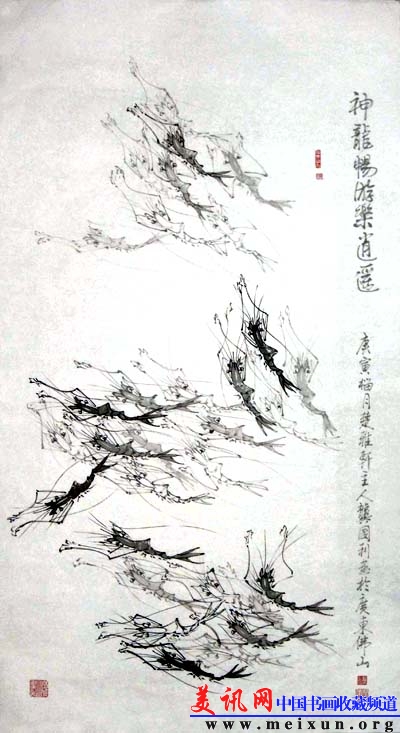 神龍暢游樂逍遥
庚寅腊月楚雅軒主人龔國利画於廣東佛山
美讯网 中国书画收藏频道
www.meixun.org